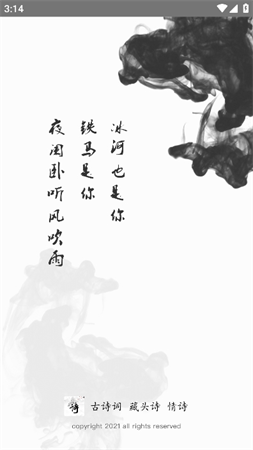 3:14
夜阑卧听风吹雨
铁马是你
冰河也是你
诗
古诗词 藏头诗 情诗
copyright 2021 all rights reserved